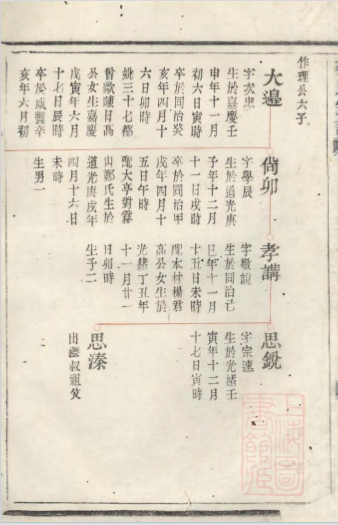 作理公六子
大邉
字次忠
生於嘉慶壬
申年十一月
初六日寅時
卒於同治癸
亥年四月十
六日卯時
姚三十七都
曾歐陽日高
公女生嘉慶
戊寅年六月
十七日辰時
卒於咸豐辛
亥年六月初
尙卯
字學辰
生於道光庚
子年十二月
十一日戌時
卒於同治甲
戌年四月十
五日午時
大亭對霖
山鄭氏生於
道光庚戌年
四月十六日
未時
生男一
孝講
字敬說
生於同治己
巳年十一月
十五日未時
木材楊君
高公女生於
光緒丁丑年
十一月廿一
日卯時
生子二
思銳
字宗速
生於光緒壬
寅年十二月
十七日寅時
思溱
出繼叔祖父